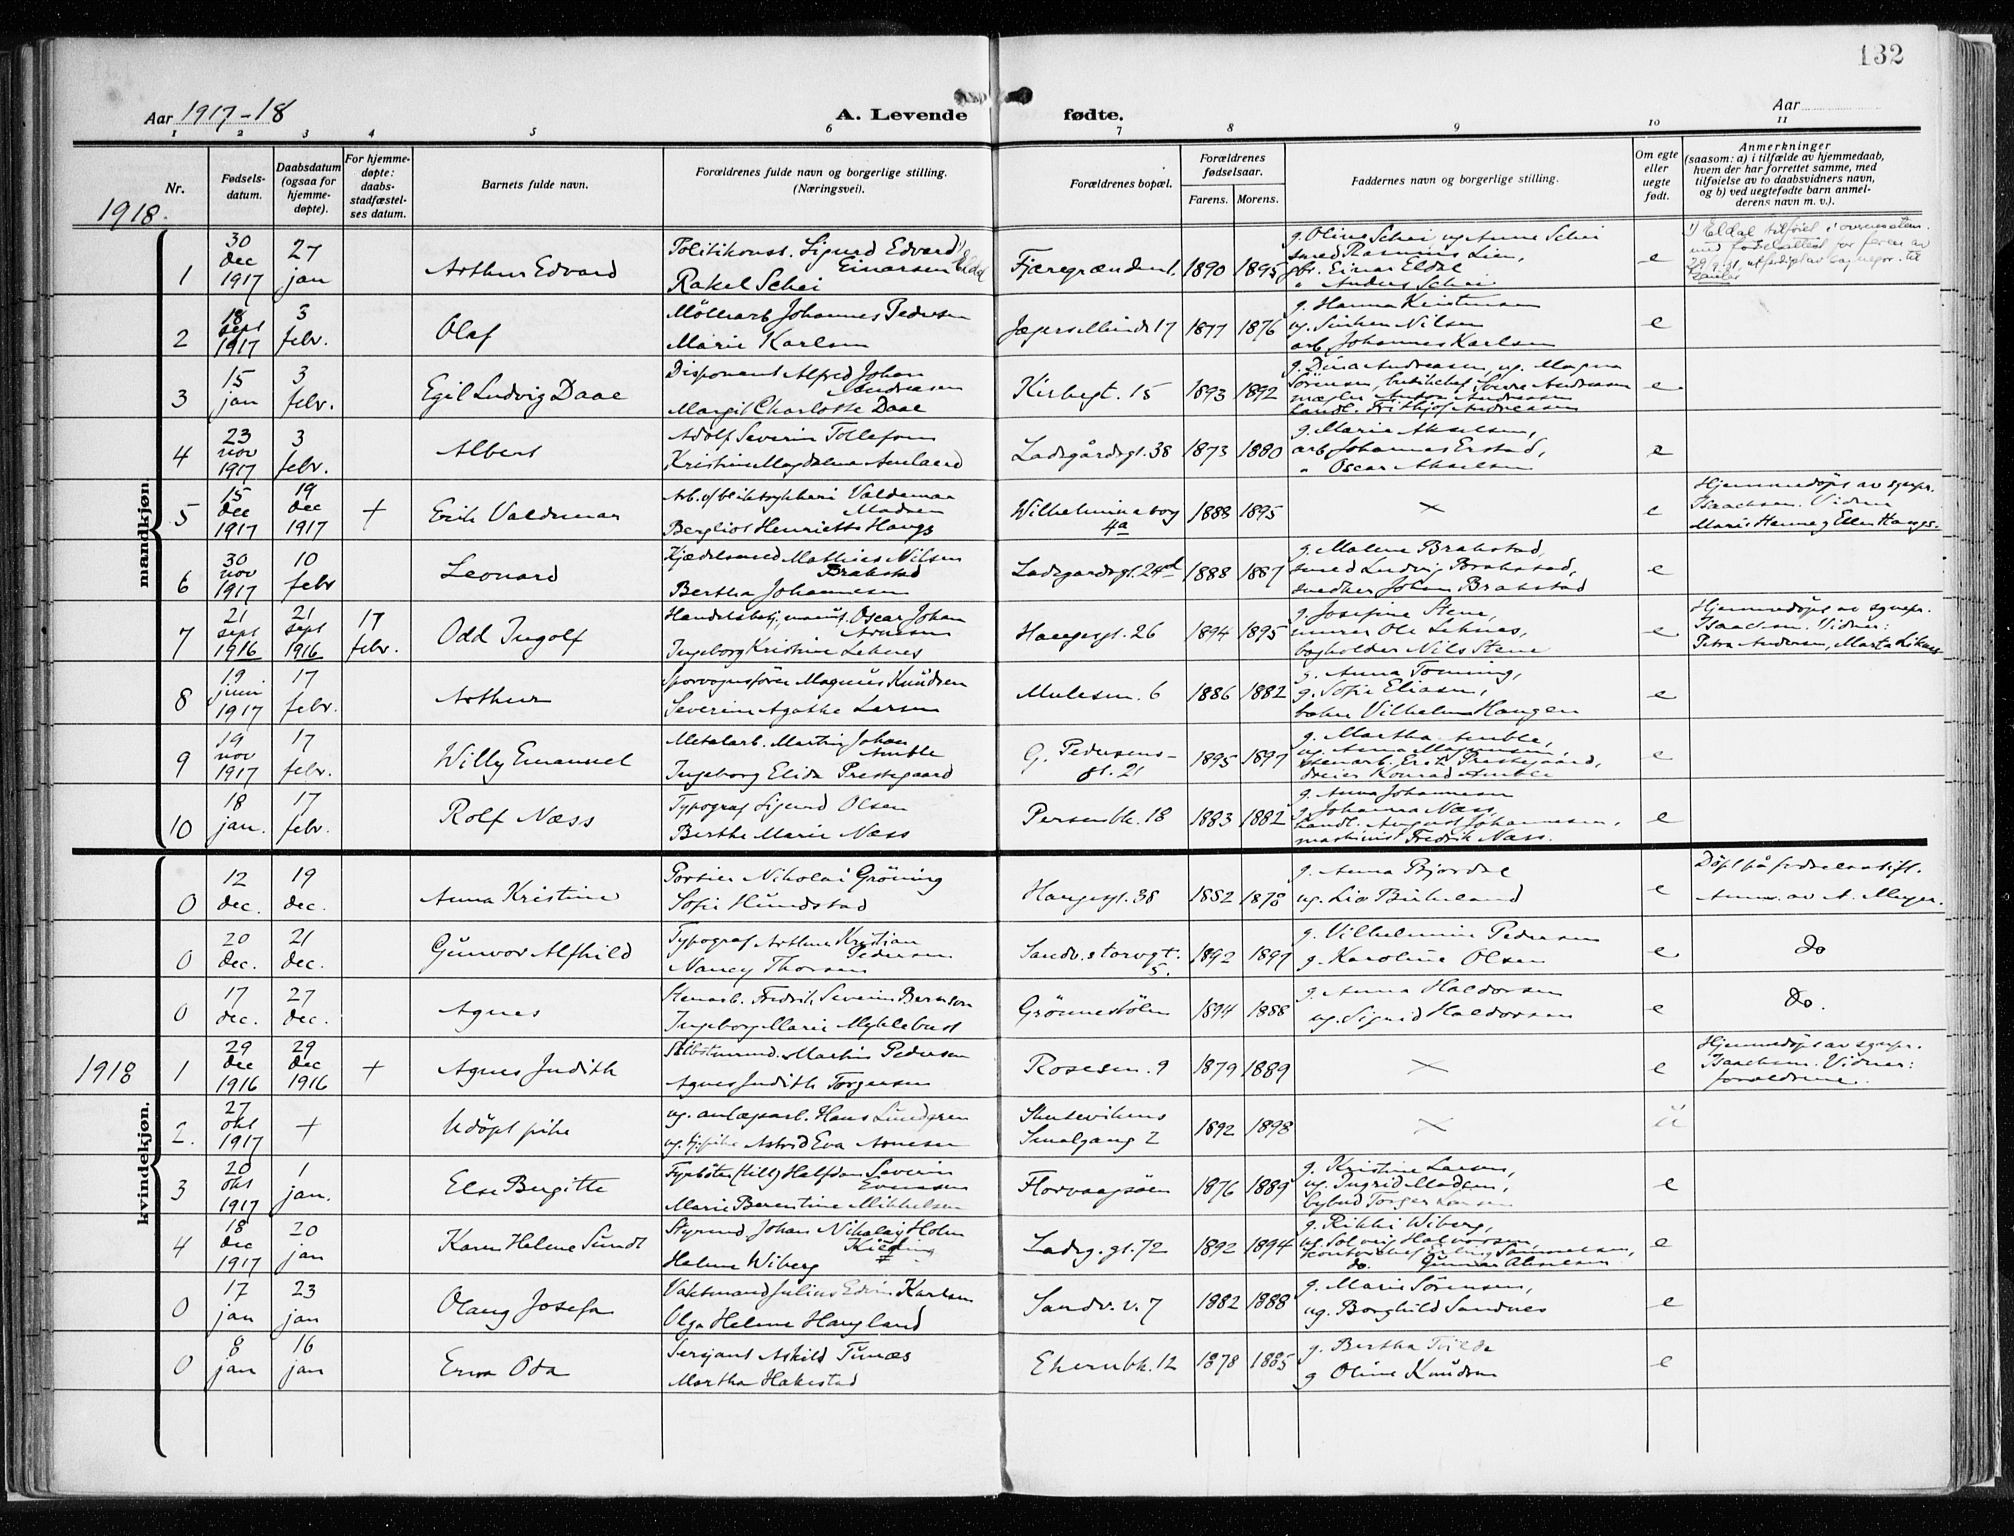 132
Aar 1917-18
A. Levende
fødte.
Aar
1 2 3 4 5 6 7 8 9 10 11
Nr.
1918.
Fødsels-
datum.
Daabsdatum
(ogsaa for
hjemme-
døpte).
For hjemme-
døpte:
daabs-
stadfæstel-
ses datum.
Barnets fulde navn.
Forældrenes fulde navn og borgerlige stilling.
(Næringsvei).
Forældrenes bopæl.
Forældrenes
fødselsaar.
Farens. Morens.
Faddernes navn og borgerlige stilling.
Om egte
eller
uegte
født.
Anmerkninger
(saasom: a) i tilfælde av hjemmedaab,
hvem der har forrettet samme, med
tilføielse av to daabsvidners navn,
og b) ved uegtefødte barn anmel-
derens navn m. v.).
mandkjøn.
1
30
dec
1917
27
jan
Arthur Edvard
Politikonst. Sigurd Edvard
Einarsen 1) Eldal
Rakel Schei
Fjæregrænden 1.
1890 1895
g. Oline Schei, ug. Anne Schei
smed Rasmus Lien,
fbr. Einar Eldal
" Anders Schei
e
1) Eldal tilføiet i
2
18
sept
1917
3
febr.
Olaf
Møllearb. Johannes Pedersen
Marie Karlsen
Jægers Minde 17
1877 1876
g. Hanna Kristensen
ug. Nilsen
arb. Johannes Karlsen
e
3
15
jan
3
febr.
Egil Ludvig Daae
Disponent Alfred Johan
Andreasen
Margit Charlotte Daae
Kirkegt. 15
1893 1892
g. Dina Andreasen, ug. Magna
Sørensen, Andreasen
mægler Anton Andreasen
handl. Frithjof Andreasen
e
4
23
nov
1917
3
febr.
Albert
Adolf Severin Tollefsen
Kristine Magdalena
Ladegårdsgt. 38
1873 1880
g. Marie Akselsen,
arb. Johannes Erstad,
" Oscar Akselsen
e
5
15
dec
1917
19
dec
1917
+
Erik Valdemar
Arb. v/ Valdemar
Madsen
Bergliot Henriette Haugs
Wilhelmineborg
4a
1888 1895
×
e
Hjemmedøpt av sgnepr.
Isaachsen. Vidner
Marie Hanne og Ellen Haugs.
6
30
nov
1917
10
febr
Leonard
Kjedelsmed Mathias Nilsen
Brakstad
Bertha Johannesen
Ladegårdsgt. 24d
1888 1887
g. Malene Brakstad,
smed Ludvig Brakstad,
snedker Johan Brakstad
e
7
21
sept
1916
21
sept
1916
17
febr.
Odd Ingolf
Handelsbetj., Oscar Johan
Arnesen
Ingeborg Kristine Leknes
Haugegt. 26
1894 1895
g. Josefine Stene,
murer Ole Leknes,
bogholder Nils Stene
e
Hjemmedøpt av sgnepr.
Isaachsen. Vidner:
Petra Andersen, Marta Leknes
8
19
juni
1917
17
febr.
Arthur
Sporvognsfører Magnus Knudsen
Severine Agathe Larsen
Mulesm. 6
1886 1882
g. Anna Tonning,
g. Sofie Eliasen,
baker Vilhelm Haugen
e
9
19
nov
1917
17
febr.
Willy Emanuel
Metalarb. Martin Johan
Amble
Ingeborg Elida Prestegaard
G. Pedersens-
gt. 21
1895 1897
g. Martha Amble,
ug. Anna Magnussen,
stenarb. Erik Prestegaard,
dreier Konrad Amble
e
10
18
jan.
17
febr.
Rolf Næss
Typograf Sigurd Olsen
Berthe Marie Næss
Persenbk. 18
1883 1882
g. Anna Johannesen
g. Johanna Næss,
handl. August Johannesen,
maskinist Fredrik Næss.
e
kvindekjøn.
0
12
dec.
19
dec.
Anna Kristine
Portier Nikolai Grøning
Sofie Hundstad
Haugegt. 38
1882 1878
g. Anna Bjordal
ug. Liv Birkeland
e
Døpt på fødselsstift.
Anm. av A. Meyer.
0
20
dec.
21
dec.
Gunvor Alfhild
Typograf Arthur Kristian
Pedersen
Nancy Thorsen
Sandv. storvgt.
5.
1892 1897
g. Vilhelmine Pedersen
g. Karoline Olsen
e
do
0
17
dec.
27
dec.
Agnes
Stenarb. Fredrik Severin Berntson
Ingeborg Marie Myklebust
Grønnestølen
1894 1888
g. Anna Haldorsen
ug. Sigrid Haldorsen
e
do.
1918
1
29
dec
1916
29
dec
1916
+
Agnes Judith
Martin Pedersen
Agnes Judith Torgersen
Rosesm. 9
1879 1889
×
e
Hjemmedøpt av sgnepr.
Isaachsen. Vidner:
forældrene.
2.
27
okt
1917
+
Udøpt pike
ug. anlægsarb. Hans Lundgren
ug. tj.pike Astrid Eva Arnesen
Skutevikens
Smalgang 2
1892 1898
×
u
3
20
okt
1917
1
jan.
Else Bergitte
Fyrbøter (till) Halfdan Severin
Evensen
Marie Berentine Mikkelsen
Florvaagøen
1876 1889
g. Kristine Larsen,
ug. Ingrid Madsen,
Torger Larsen
e
4
18
dec
1917
20
jan
Karen Helene Sundt
Styrmd. Johan Nikolay Holm
Kielding
Helene Wiberg
Ladeg. gt. 72
1892 1894
g. Rikke Wiberg,
ug. Solveig Halvorsen,
kontorchef Erling Samuelsen,
do. Gunnar Akselsen
e
0
17
jan
23
jan
Olaug Josefa
Vaktmand Julius Edvin Karlsen
Olga Helene Haugland
Sandv. v. 7
1882 1888
g. Marie Sørensen,
ug. Borghild Sandnes
e
0
8
jan
16
jan
Erna Oda
Sersjant Askild Tunæs
Martha Hakestad
Ekernbk. 12
1878 1885
g. Bertha Tvilde
g Oline Knudsen
e